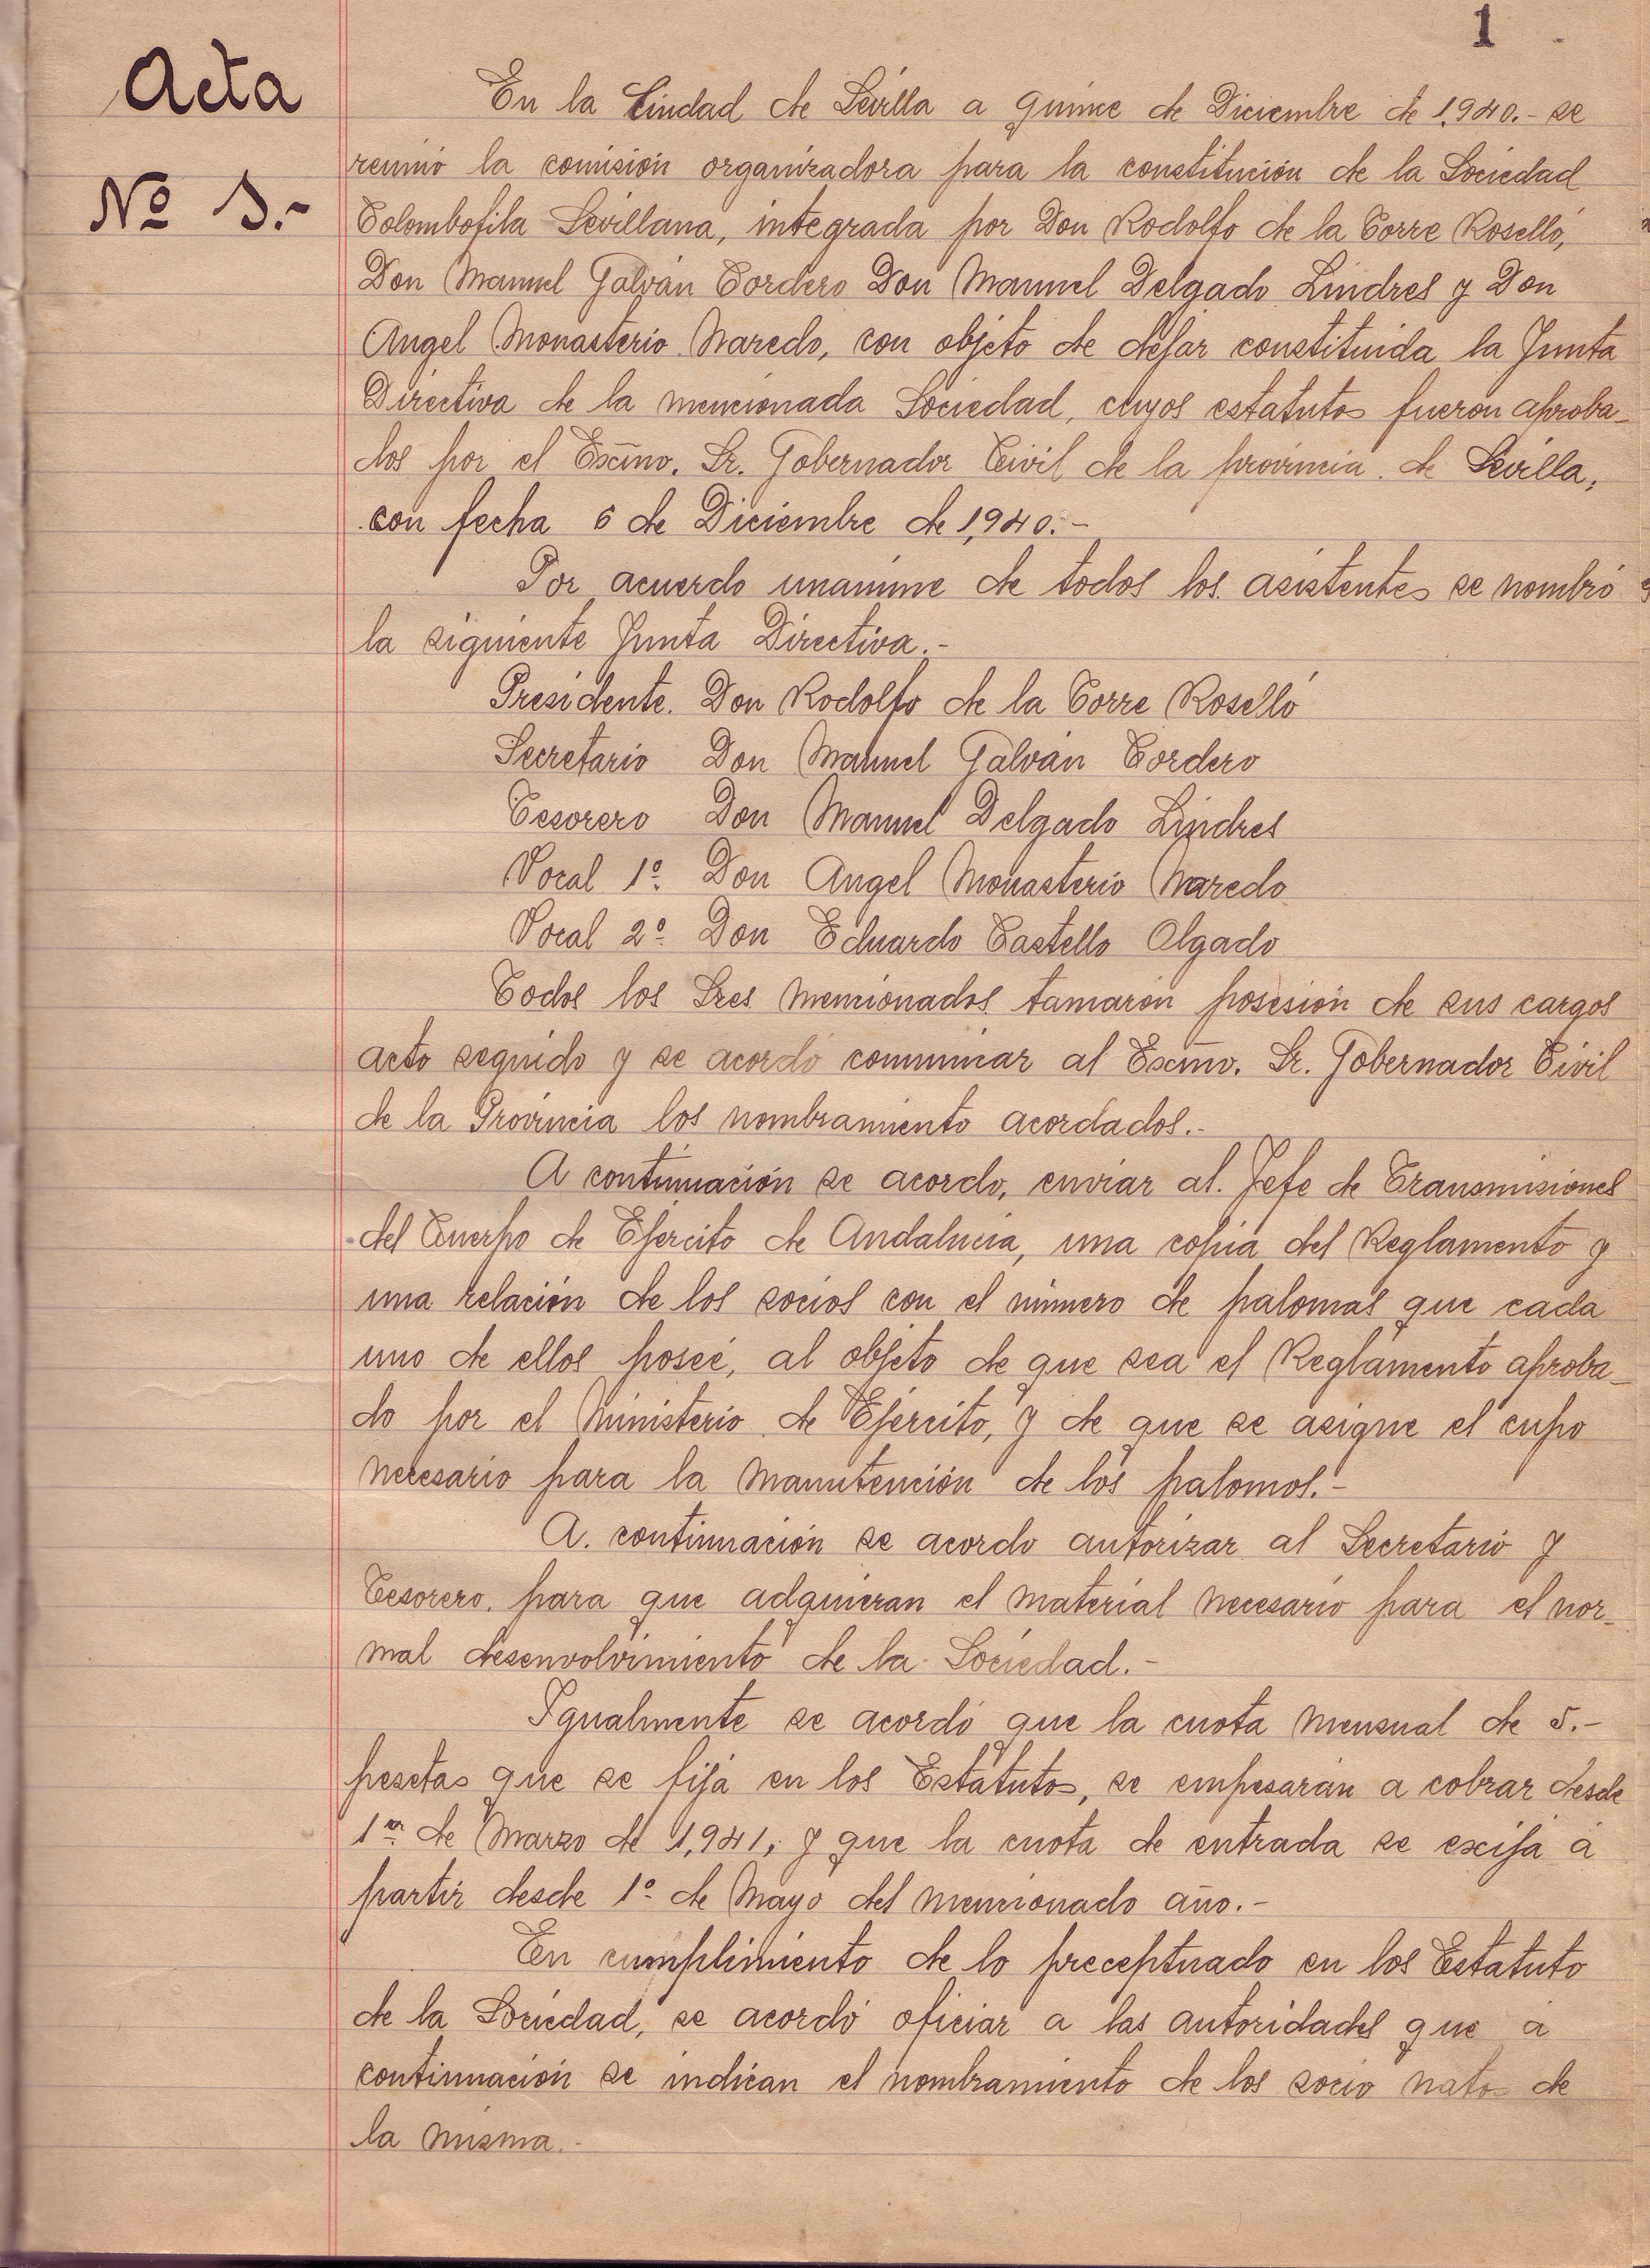 1
Acta
Nº 1.-
En la Ciudad de Sevilla a quince de Diciembre de 1,940.- se
reunió la comisión organizadora para la constitución de la Sociedad
Colombofila Sevillana, integrada por Don Rodolfo de la Torre Roselló,
Don Manuel Galván Cordero Don Manuel Delgado Lindres y Don
Angel Monasterio Naredo, con objeto de dejar constituida la Junta
Directiva de la mencionada Sociedad, cuyos estatutos fueron aproba-
dos por el Excmo. Sr. Gobernador Civil de la provincia de Sevilla,
con fecha 6 de Diciembre de 1,940.-
Por acuerdo unanime de todos los asistentes se nombró
la siguiente Junta Directiva.-
Presidente. Don Rodolfo de la Torre Roselló
Secretario Don Manuel Galván Cordero
Tesorero Don Manuel Delgado Lindres
Vocal 1º Don Angel Monasterio Naredo
Vocal 2º Don Eduardo Castello Olgado
Todos los Sres mencionados tamarón posesión de sus cargos
acto seguido y se acordó comunicar al Excmo. Sr. Gobernador Civil
de la Provincia los nombramiento acordados.-
A continuación se acordo, enviar al Jefe de Transmisiones
del Cuerpo de Ejercito de Andalucia, una copia del Reglamento y
una relación de los socios con el número de palomas que cada
uno de ellos poseé, al objeto de que sea el Reglamento aproba-
do por el Ministerio de Ejército, y de que se asigne el cupo
necesario para la manutención de los palomos.-
A. continuación se acordo autorizar al Secretario y
Tesorero para que adquieran el material necesario para el nor-
mal desenvolvimiento de la Sociedad.-
Igualmente se acordó que la cuota mensual de 5.-
pesetas que se fija en los Estatutos, se empesarán a cobrar desde
1º de Marzo de 1,941, y que la cuota de entrada se excija a
partir desde 1º de Mayo del mencionado año.-
En cumplimiento de lo preceptuado en los Estatuto
de la Sociedad, se acordó oficiar a las autoridades que a
continuación se indican el nombramiento de los socio natos de
la misma.-